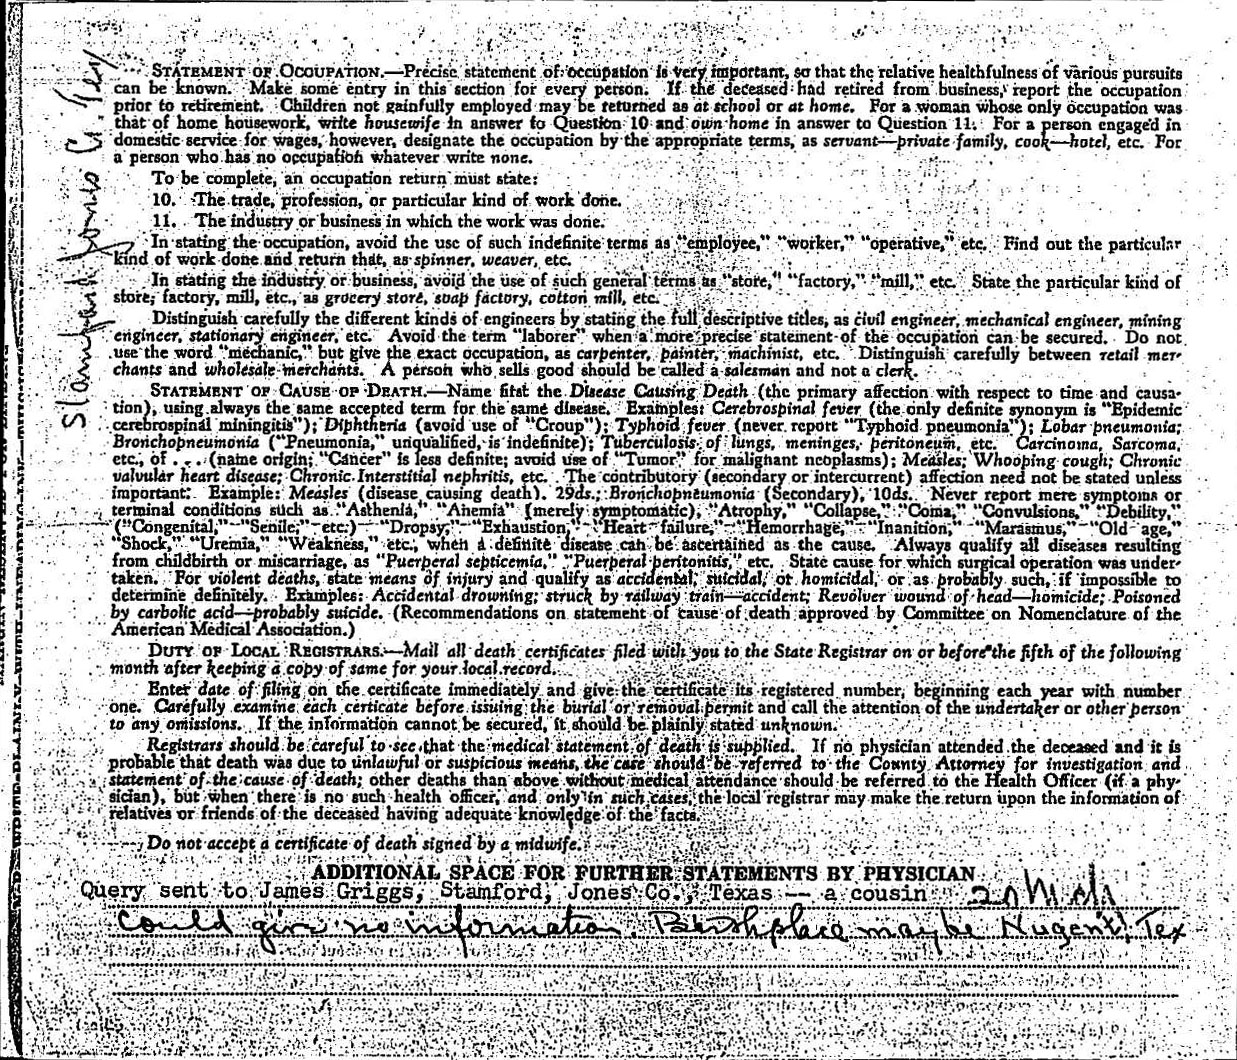 STATEMENT OF OCCUPATION.—Precise statement of occupation is very important, so that the relative healthfulness of various pursuits
can be known. Make some entry in this section for every person. If the deceased had retired from business, report the occupation
prior to retirement. Children not gainfully employed may be returned as at school or at home. For a woman whose only occupation was
that of home housework, write housewife in answer to Question 10 and own home in answer to Question 11. For a person engaged in
domestic service for wages, however, designate the occupation by the appropriate terms, as servant—private family, cook—hotel, etc. For
a person who has no occupation whatever write none.
To be complete, an occupation return must state:
10. The trade, profession, or particular kind of work done.
11. The industry or business in which the work was done.
In stating the occupation, avoid the use of such indefinite terms as "employee," "worker," "operative," etc. Find out the particular
kind of work done and return that, as spinner, weaver, etc.
In stating the industry or business, avoid the use of such general terms as "store," "factory," "mill," etc. State the particular kind of
store, factory, mill, etc., as grocery store, soap factory, cotton mill, etc.
Distinguish carefully the different kinds of engineers by stating the full descriptive titles, as civil engineer, mechanical engineer, mining
engineer, stationary engineer, etc. Avoid the term "laborer" when a more precise statement of the occupation can be secured. Do not
use the word "mechanic," but give the exact occupation, as carpenter, painter, machinist, etc. Distinguish carefully between retail mer-
chants and wholesale merchants. A person who sells good should be called a salesman and not a clerk.
STATEMENT OF CAUSE OF DEATH.—Name first the Disease Causing Death (the primary affection with respect to time and causa-
tion), using always the same accepted term for the same disease. Examples: Cerebrospinal fever (the only definite synonym is "Epidemic
cerebrospinal miningitis"); Diphtheria (avoid use of "Croup"); Typhoid fever (never report "Typhoid pneumonia"); Lobar pneumonia;
Bronchopneumonia ("Pneumonia," unqualified, is indefinite); Tuberculosis of lungs, meninges, peritoneum, etc. Carcinoma, Sarcoma,
etc., of . . . (name origin; "Cancer" is less definite; avoid use of "Tumor" for malignant neoplasms); Measles; Whooping cough; Chronic
valvular heart disease; Chronic Interstitial nephritis, etc. The contributory (secondary or intercurrent) affection need not be stated unless
important. Example: Measles (disease causing death). 29ds.; Bronchopneumonia (Secondary), 10ds. Never report mere symptoms or
terminal conditions such as "Asthenia," "Anemia" (merely symptomatic), "Atrophy," "Collapse," "Coma," "Convulsions," "Debility,"
("Congenital," "Senile," etc.) "Dropsy," "Exhaustion," "Heart failure," "Hemorrhage," "Inanition," "Marasmus," "Old age,"
"Shock," "Uremia," "Weakness," etc., when a definite disease can be ascertained as the cause. Always qualify all diseases resulting
from childbirth or miscarriage, as "Puerperal septicemia," "Puerperal peritonitis," etc. State cause for which surgical operation was under-
taken. For violent deaths, state means of injury and qualify as accidental, suicidal, or homicidal, or as probably such, if impossible to
determine definitely. Examples: Accidental drowning; struck by railway train—accident; Revolver wound of head—homicide; Poisoned
by carbolic acid—probably suicide. (Recommendations on statement of cause of death approved by Committee on Nomenclature of the
American Medical Association.)
DUTY OF LOCAL REGISTRARS.—Mail all death certificates filed with you to the State Registrar on or before the fifth of the following
month after keeping a copy of same for your local record.
Enter date of filing on the certificate immediately and give the certificate its registered number, beginning each year with number
one. Carefully examine each certicate before issuing the burial or removal permit and call the attention of the undertaker or other person
to any omissions. If the information cannot be secured, it should be plainly stated unknown.
Registrars should be careful to see that the medical statement of death is supplied. If no physician attended the deceased and it is
probable that death was due to unlawful or suspicious means, the case should be referred to the County Attorney for investigation and
statement of the cause of death; other deaths than above without medical attendance should be referred to the Health Officer (if a phy-
sician), but when there is no such health officer, and only in such cases, the local registrar may make the return upon the information of
relatives or friends of the deceased having adequate knowledge of the facts.
Do not accept a certificate of death signed by a midwife.
ADDITIONAL SPACE FOR FURTHER STATEMENTS BY PHYSICIAN
Query sent to James Griggs, Stamford, Jones Co., Texas -- a cousin
could give no information. Birthplace may be Nugent, Tex